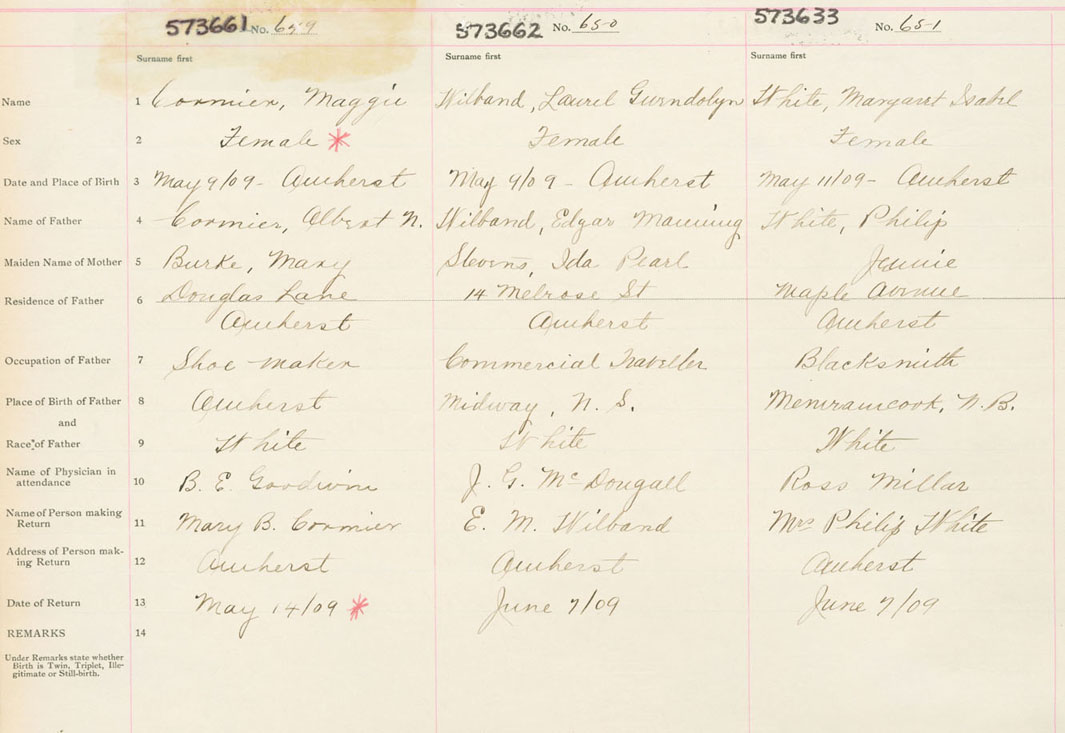 573661 No. 649 573662 No. 650 573633 No. 651
Surname first Surname first Surname first
Name 1 Cormier, Maggie Wilband, Laurel Gwendolyn White, Margaret Isabel
Sex 2 Female * Female Female
Date and Place of Birth 3 May 9/09 - Amherst May 9/09 - Amherst May 11/09 - Amherst
Name of Father 4 Cormier, Albert N. Wilband, Edgar Manning White, Philip
Maiden Name of Mother 5 Burke, Mary Stevens, Ida Pearl Jennie
Residence of Father 6 Douglas Lane 14 Melrose St Maple Avenue
Amherst Amherst Amherst
Occupation of Father 7 Shoe-maker Commercial Traveller Blacksmith
Place of Birth of Father 8 Amherst Midway, N. S. Memramcook, N.B.
and
Race of Father 9 White White White
Name of Physician in
attendance 10 B. E. Goodwin J. G. McDougall Ross Millar
Name of Person making
Return 11 Mary B. Cormier E. M. Wilband Mrs Philip White
Address of Person mak-
ing Return 12 Amherst Amherst Amherst
Date of Return 13 May 14/09 * June 7/09 June 7/09
REMARKS 14
Under Remarks state whether
Birth is Twin, Triplet, Ille-
gitimate or Still-birth.